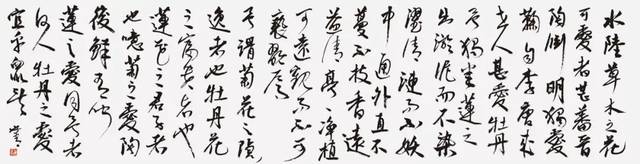 水陸草木之花
可愛者甚蕃晉
陶淵明獨愛
菊自李唐來
世人甚愛牡丹
予獨愛蓮之
出淤泥而不染
濯清漣而不妖
中通外直不
蔓不枝香遠
益清亭亭淨植
可遠觀而不可
褻翫焉
予謂菊花之隱
逸者也牡丹花
之富貴者也
蓮花之君子者
也噫菊之愛陶
後鮮有聞
蓮之愛同予者
何人牡丹之愛
宜乎眾矣